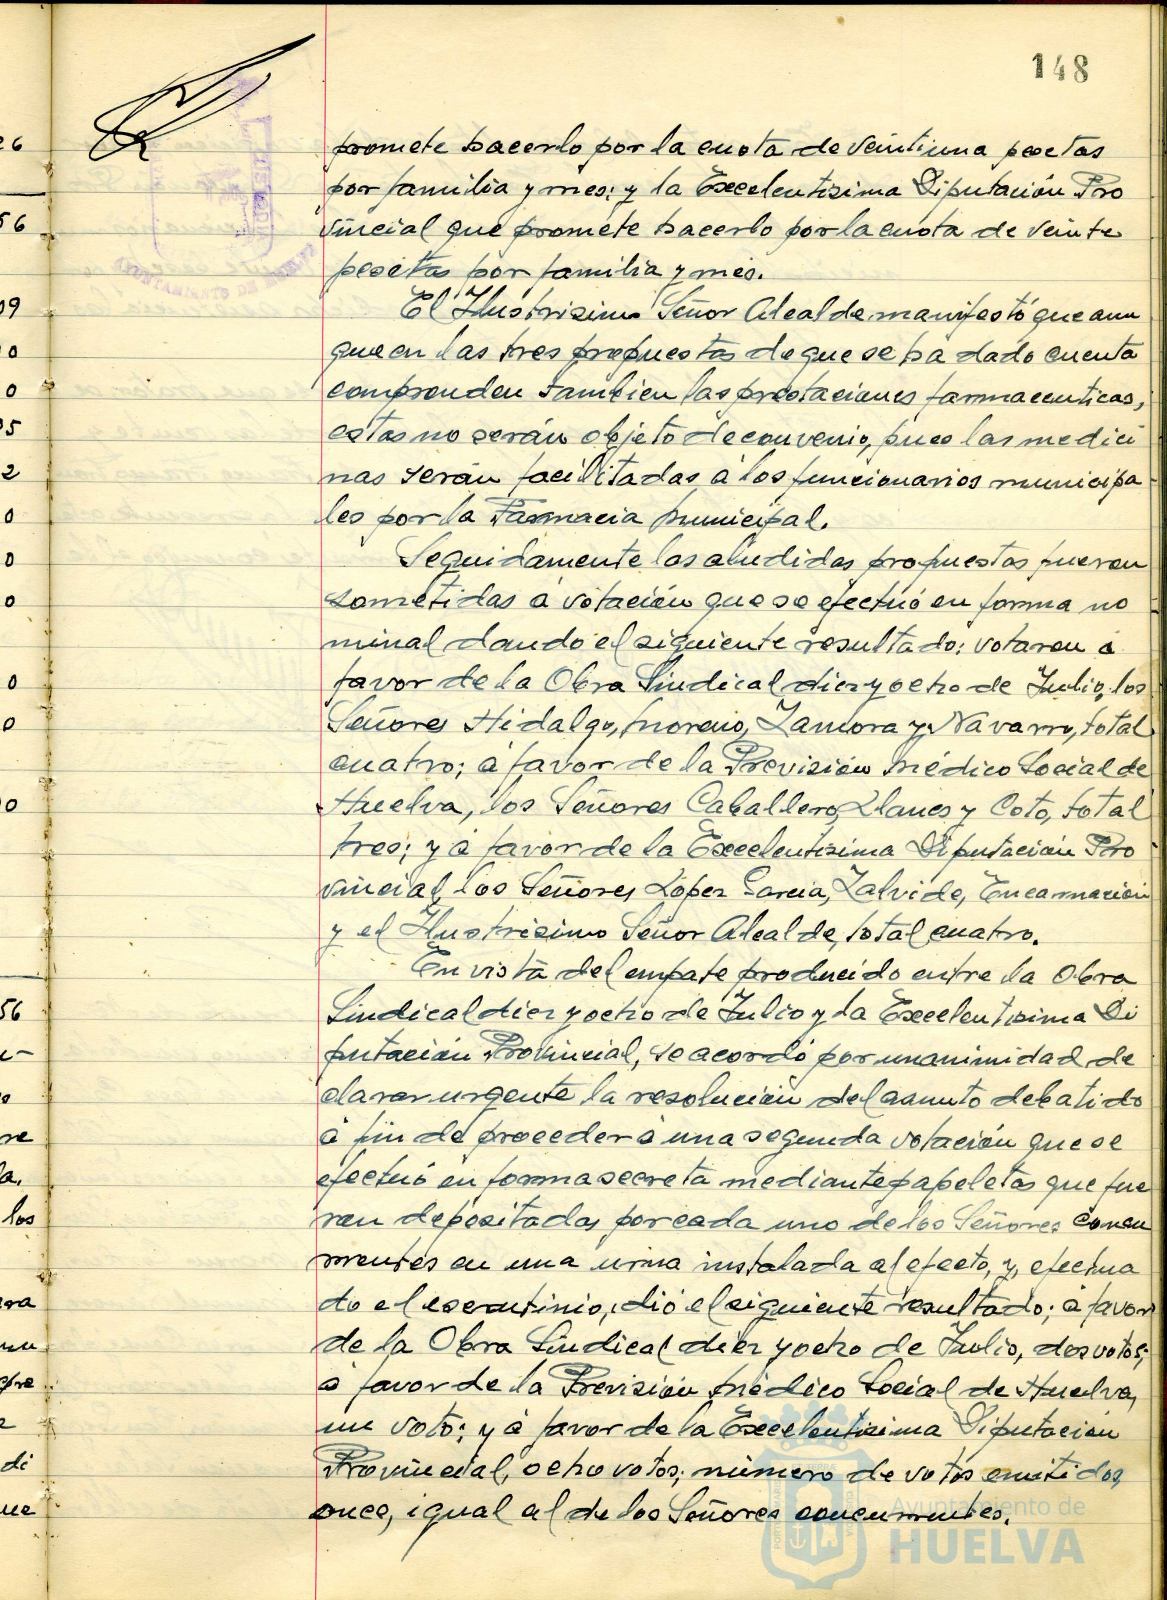 148
promete hacerlo por la cuota de veintiuna pesetas
por familia y mes; y la Excelentisima Diputación Pro
vincial que promete hacerlo por la cuota de veinte
pesetas por familia y mes.
El Ilustrisimo Señor Alcalde manifestó que aun
que en las tres propuestas de que se ha dado cuenta
comprenden tambien las prestaciones farmaceuticas,
estas no serán objeto de convenio, pues las medici
nas serán facilitadas a los funcionarios municipa
les por la Farmacia Municipal.
Seguidamente las aludidas propuestas fueron
sometidas a votación que se efectuó en forma no
minal dando el siguiente resultado: votaron a
favor de la Obra Sindical diez y ocho de Julio, los
Señores Hidalgo, Moreno, Zamora y Navarro, total
cuatro; a favor de la Previsión Médico Social de
Huelva, los Señores Caballero, Llanes y Coto, total
tres; y a favor de la Excelentisima Diputación Pro
vincial, los Señores López Garcia, Zalvide, Encarnación
y el Ilustrisimo Señor Alcalde, total cuatro.
En vista del empate producido entre la Obra
Sindical diez y ocho de Julio y la Excelentisima Di
putación Provincial, se acordó por unanimidad de
clarar urgente la resolución del asunto debatido
a fin de proceder a una segunda votación que se
efectuó en forma secreta mediante papeletas que fue
ron depositadas por cada uno de los Señores concu
rrentes en una urna instalada al efecto, y, efectua
do el escrutinio, dió el siguiente resultado; a favor
de la Obra Sindical diez y ocho de Julio, dos votos;
a favor de la Previsión Médico Social de Huelva,
un voto; y a favor de la Excelentisima Diputación
Provincial, ocho votos; número de votos emitidos,
once, igual al de los Señores concurrentes.
AYUNTAMIENTO DE HUELVA
Ayuntamiento de
HUELVA